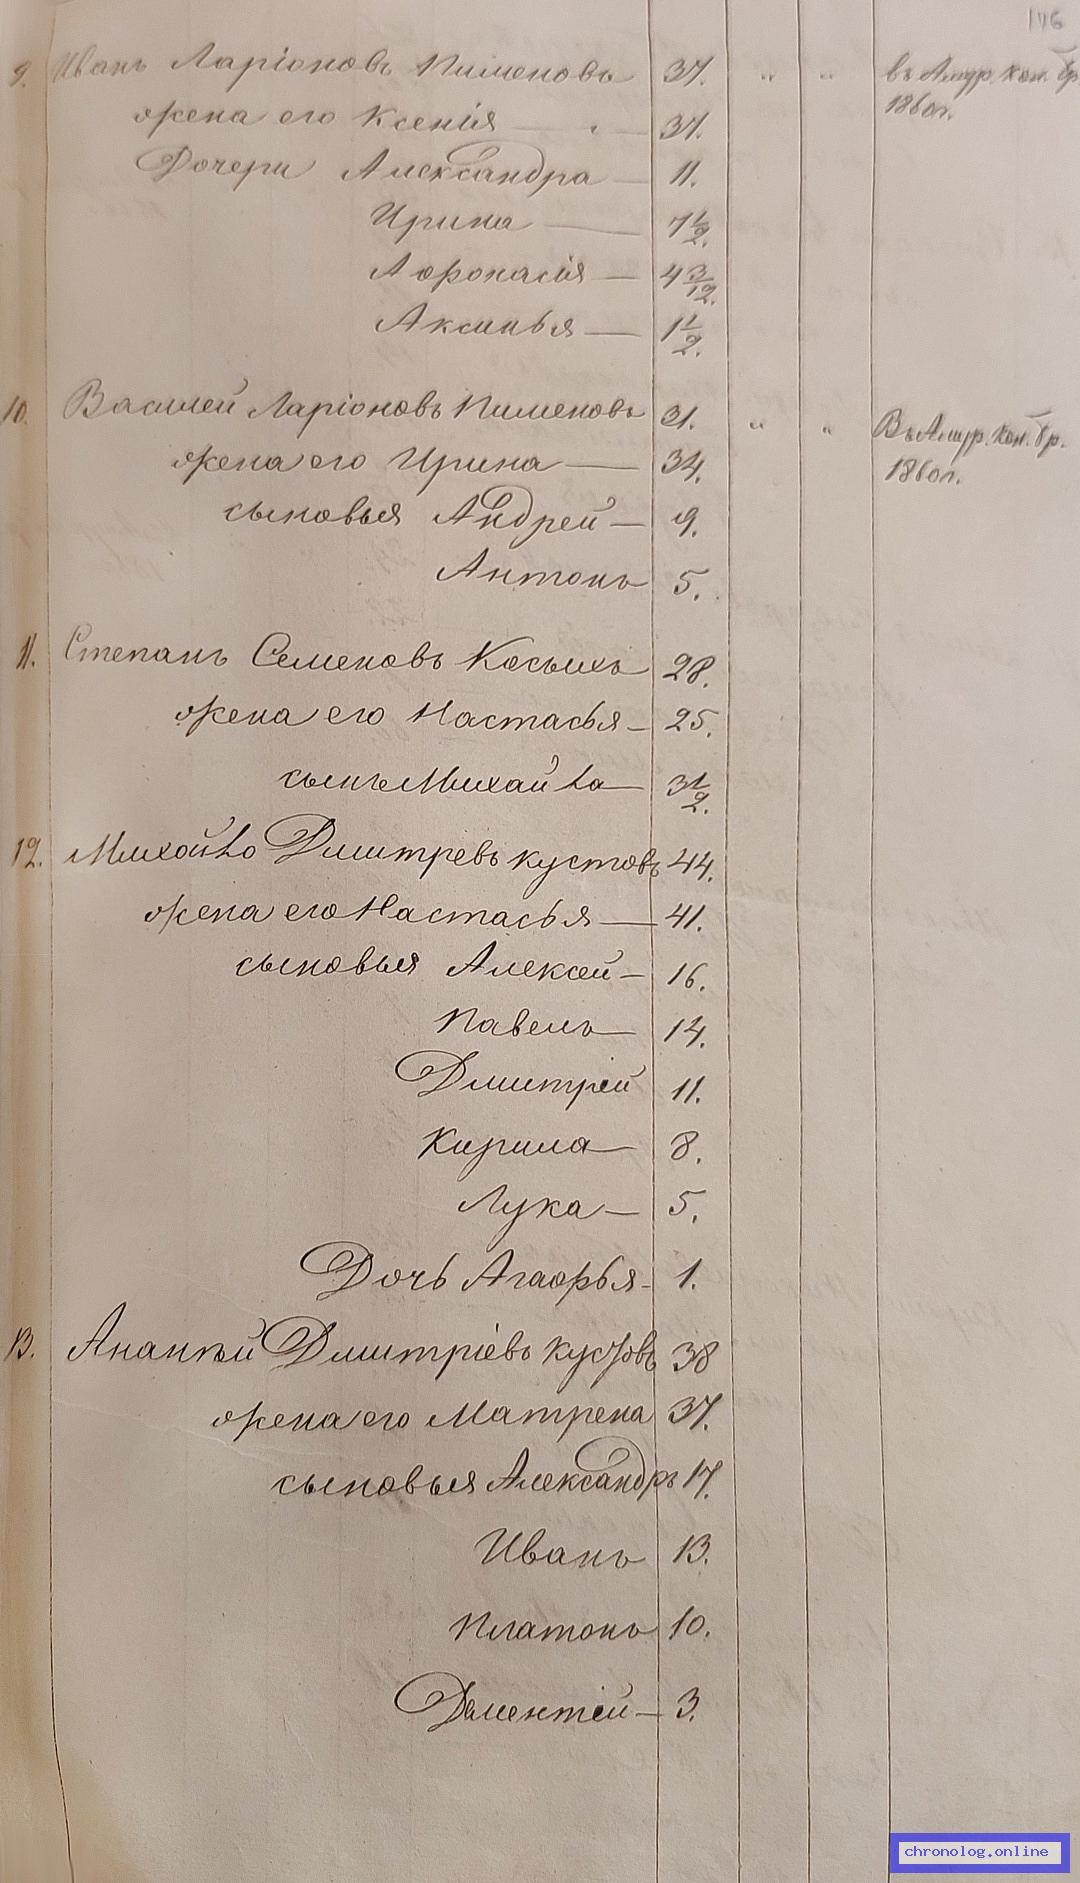 176
9. Иванъ Ларіоновъ Пименовъ 37. " " въ Амур. кон. бр.
1860 г.
жена его Ксенія — 37.
Дочери Александра — 11.
Ирина — 7 1/2.
Афонасія — 4 3/12.
Аксинья — 1 1/2.
10. Василей Ларіоновъ Пименовъ 31. " " Въ Амур. Кон. бр.
1860 г.
жена его Ирина — 34.
сыновья Андрей — 9.
Антонъ 5.
11. Степанъ Семеновъ Косыхъ 28.
жена его Настасья — 25.
сынъ Михайла — 3 1/2.
12. Михойло Дмитревъ Кустовъ 44.
жена его Настасья — 41.
сыновья Алексей — 16.
Павелъ — 14.
Дмитрей 11.
Кирила — 8.
Лука — 5.
Дочь Агафья — 1.
13. Ананьи Дмитріевъ Кустовъ 38
жена его Матрена 37.
сыновья Александръ 17.
Иванъ 13.
Платонъ 10.
Дементей — 3.
chronolog.online